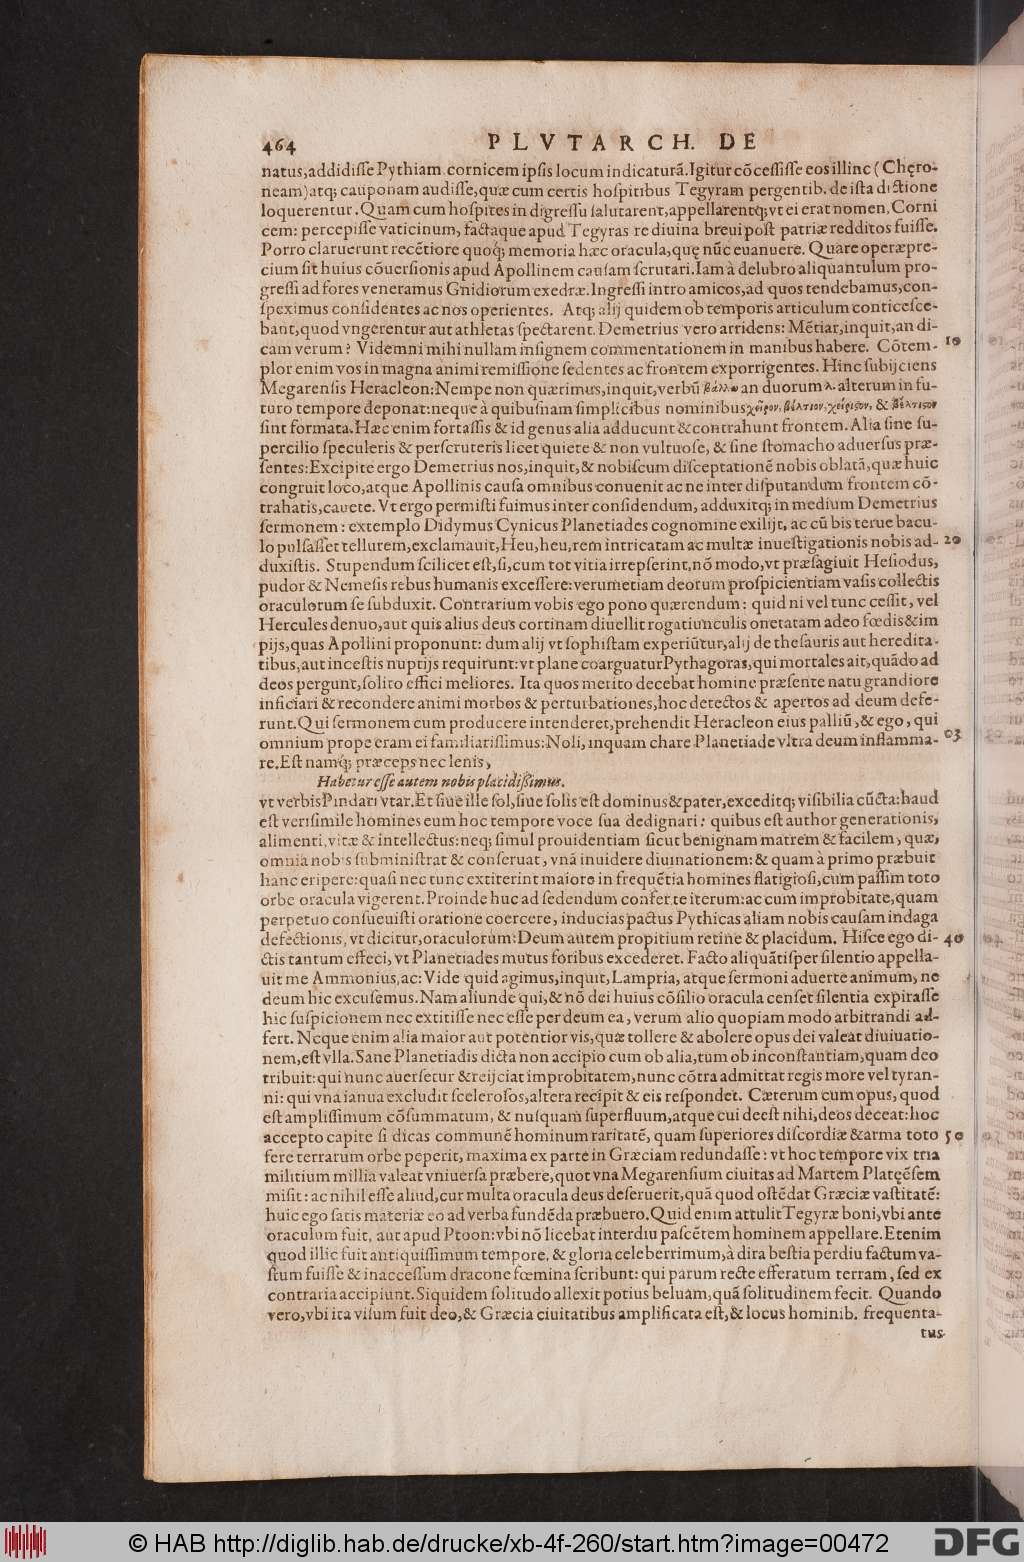 464 PLVTARCH. DE
natus, addidiſſe Pythiam cornicem ipſis locum indicaturã. Igitur cõceſſiſſe eos illinc (Chęro-
neam) atq; cauponam audiſſe, quæ cum certis hoſpitibus Tegyram pergentib. de iſta dictione
loquerentur. Quam cum hoſpites in digreſſu ſalutarent, appellarentq; vt ei erat nomen, Corni
cem: percepiſſe vaticinum, factaque apud Tegyras re diuina breui poſt patriæ redditos fuiſſe.
Porro claruerunt recẽtiore quoq; memoria hæc oracula, quę nũc euanuere. Quare operæpre-
cium ſit huius cõuerſionis apud Apollinem cauſam ſcrutari. Iam à delubro aliquantulum pro-
greſſi ad fores veneramus Gnidiorum exedræ. Ingreſſi intro amicos, ad quos tendebamus, con-
ſpeximus conſidentes ac nos operientes. Atq; alij quidem ob temporis articulum conticeſce-
bant, quod vngerentur aut athletas ſpectarent. Demetrius vero arridens: Mẽtiar, inquit, an di-
cam verum? Videmni mihi nullam inſignem commentationem in manibus habere. Cõtem- 10
plor enim vos in magna animi remiſſione ſedentes ac frontem exporrigentes. Hinc ſubijciens
Megarenſis Heracleon: Nempe non quærimus, inquit, verbũ βάλλω an duorum λ. alterum in fu-
turo tempore deponat: neque à quibuſnam ſimplicibus nominibus χεῖρον, βέλτιον, χείριςον, & βέλτιςον
ſint formata. Hæc enim fortaſſis & id genus alia adducunt & contrahunt frontem. Alia ſine ſu-
percilio ſpeculeris & perſcruteris licet quiete & non vultuoſe, & ſine ſtomacho aduerſus præ-
ſentes: Excipite ergo Demetrius nos, inquit, & nobiſcum diſceptationẽ nobis oblatã, quæ huic
congruit loco, atque Apollinis cauſa omnibus conuenit ac ne inter diſputandum frontem cõ-
trahatis, cauete. Vt ergo permiſti fuimus inter conſidendum, adduxitq; in medium Demetrius
ſermonem: extemplo Didymus Cynicus Planetiades cognomine exilijt, ac cũ bis terue bacu-
lo pulſaſſet tellurem, exclamauit, Heu, heu, rem intricatam ac multæ inueſtigationis nobis ad- 20
duxiſtis. Stupendum ſcilicet eſt, ſi, cum tot vitia irrepſerint, nõ modo, vt præſagiuit Heſiodus,
pudor & Nemeſis rebus humanis exceſſere: verumetiam deorum proſpicientiam vaſis collectis
oraculorum ſe ſubduxit. Contrarium vobis ego pono quærendum: quid ni vel tunc ceſſit, vel
Hercules denuo, aut quis alius deus cortinam diuellit rogatiunculis onetatam adeo fœdis & im
pijs, quas Apollini proponunt: dum alij vt ſophiſtam experiũtur, alij de theſauris aut heredita-
tibus, aut inceſtis nuptijs requirunt: vt plane coarguatur Pythagoras, qui mortales ait, quãdo ad
deos pergunt, ſolito effici meliores. Ita quos merito decebat homine præſente natu grandiore
inficiari & recondere animi morbos & perturbationes, hoc detectos & apertos ad deum defe-
runt. Qui ſermonem cum producere intenderet, prehendit Heracleon eius palliũ, & ego, qui
omnium prope eram ei familiariſſimus: Noli, inquam chare Planetiade vltra deum inflamma- 03
re. Eſt namq; præceps nec lenis,
Habetur eſſe autem nobis placidiſſimus.
vt verbis Pindari vtar. Et ſiue ille ſol, ſiue ſolis eſt dominus & pater, exceditq; viſibilia cũcta: haud
eſt veriſimile homines eum hoc tempore voce ſua dedignari: quibus eſt author generationis,
alimenti, vitæ & intellectus: neq; ſimul prouidentiam ſicut benignam matrem & facilem, quæ,
omnia nobis ſubminiſtrat & conſeruat, vnã inuidere diuinationem: & quam à primo præbuit
hanc eripere: quaſi nec tunc extiterint maiore in frequẽtia homines flatigioſi, cum paſſim toto
orbe oracula vigerent. Proinde huc ad ſedendum confer te iterum: ac cum improbitate, quam
perpetuo conſueuiſti oratione coercere, inducias pactus Pythicas aliam nobis cauſam indaga
defectionis, vt dicitur, oraculorum: Deum autem propitium retine & placidum. Hiſce ego di- 40
ctis tantum effeci, vt Planetiades mutus foribus excederet. Facto aliquãtiſper ſilentio appella-
uit me Ammonius, ac: Vide quid agimus, inquit, Lampria, atque ſermoni aduerte animum, ne
deum hic excuſemus. Nam aliunde qui, & nõ dei huius cõſilio oracula cenſet ſilentia expiraſſe
hic ſuſpicionem nec extitiſſe nec eſſe per deum ea, verum alio quopiam modo arbitrandi ad-
fert. Neque enim alia maior aut potentior vis, quæ tollere & abolere opus dei valeat diuiuatio-
nem, eſt vlla. Sane Planetiadis dicta non accipio cum ob alia, tum ob inconſtantiam, quam deo
tribuit: qui nunc auerſetur & reijciat improbitatem, nunc cõtra admittat regis more vel tyran-
ni: qui vna ianua excludit ſceleroſos, altera recipit & eis reſpondet. Cæterum cum opus, quod
eſt ampliſſimum cõſummatum, & nuſquam ſuperfluum, atque cui deeſt nihil, deos deceat: hoc
accepto capite ſi dicas communẽ hominum raritatẽ, quam ſuperiores diſcordiæ & arma toto 50
fere terrarum orbe peperit, maxima ex parte in Græciam redundaſſe: vt hoc tempore vix tria
militium millia valeat vniuerſa præbere, quot vna Megarenſium ciuitas ad Martem Platęẽſem
miſit: ac nihil eſſe aliud, cur multa oracula deus deſeruerit, quã quod oſtẽdat Græciæ vaſtitatẽ:
huic ego ſatis materiæ eo ad verba fundẽda præbuero. Quid enim attulit Tegyræ boni, vbi ante
oraculum fuit, aut apud Ptoon: vbi nõ licebat interdiu paſcẽtem hominem appellare. Etenim
quod illic fuit antiquiſſimum tempore, & gloria celeberrimum, à dira beſtia perdiu factum va-
ſtum fuiſſe & inacceſſum dracone fœmina ſcribunt: qui parum recte efferatum terram, ſed ex
contraria accipiunt. Siquidem ſolitudo allexit potius beluam, quã ſolitudinem fecit. Quando
vero, vbi ita viſum fuit deo, & Græcia ciuitatibus amplificata eſt, & locus hominib. frequenta-
tus
© HAB http://diglib.hab.de/drucke/xb-4f-260/start.htm?image=00472
DFG